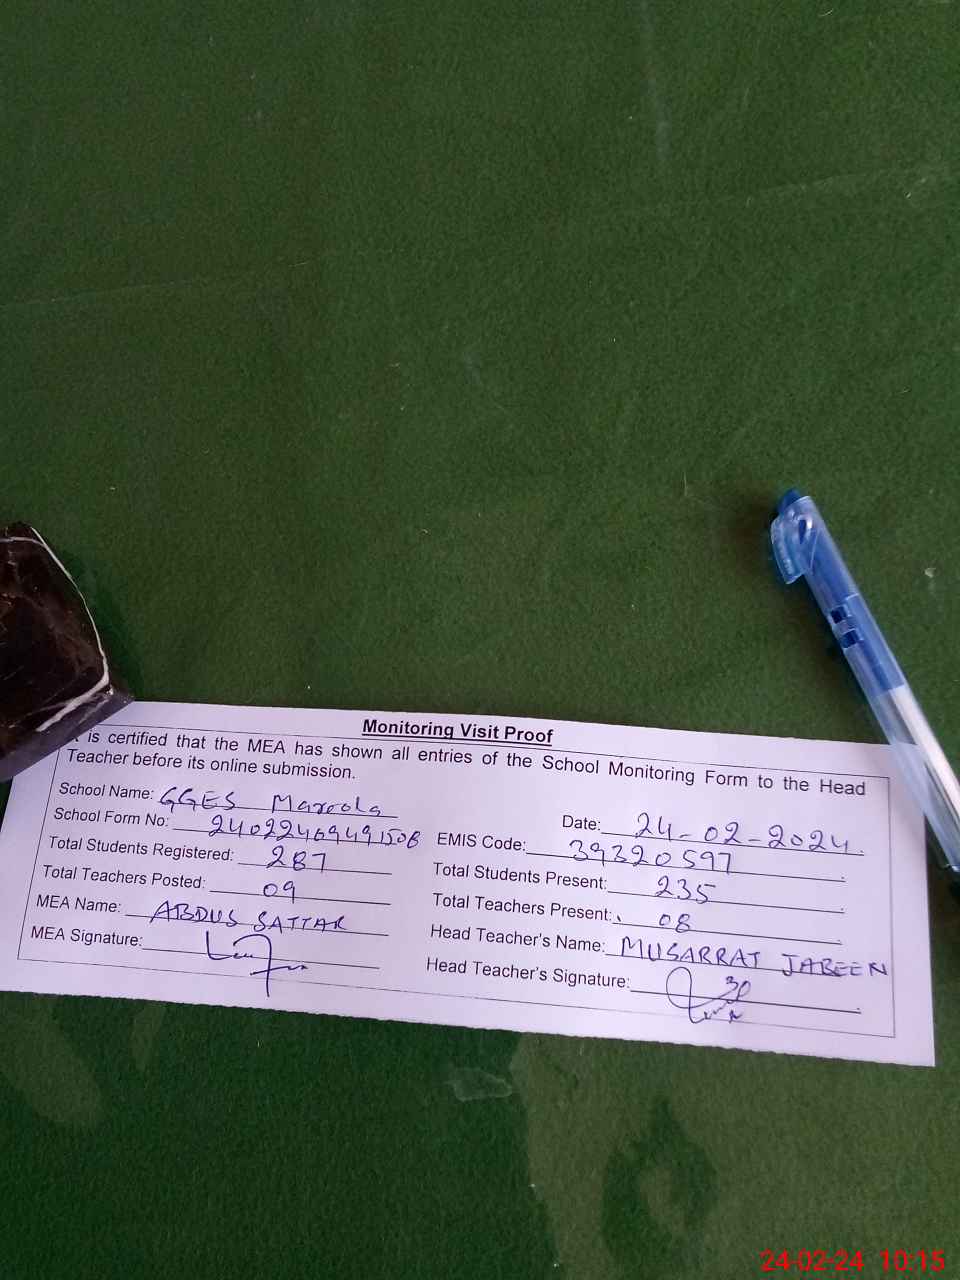 Monitoring Visit Proof
It is certified that the MEA has shown all entries of the School Monitoring Form to the Head
Teacher before its online submission.
School Name: GGES Mareola
Date: 24-02-2024.
School Form No: 24022469491508
EMIS Code: 39320597
Total Students Registered: 287
Total Students Present: 235
Total Teachers Posted: 09
Total Teachers Present: 08
MEA Name: ABDUS SATTAR
Head Teacher's Name: MUSARRAT JABEEN
MEA Signature:
Head Teacher's Signature:
24-02-24 10:15